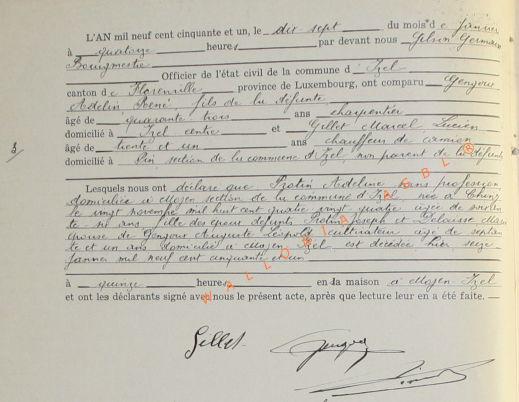 L'AN mil neuf cent cinquante et un, le dix sept du mois d e janvier
à quatorze heures par devant nous Gilson Germain
Bourgmestre
Officier de l'état civil de la commune d' Izel
canton de Florenville province de Luxembourg, ont comparu Gengoux
Adelin René, fils de la défunte
âgé de quarante trois ans charpentier
domicilié à Izel centre et Gillet Marcel Lucien
âgé de trente et un ans chauffeur de camion
domicilié à Pin section de la commune d'Izel, non parent de la défunte
Lesquels nous ont déclaré que Protin Adeline sans profession
domiciliée à Moyen section de la commune d'Izel née à Chiny
le vingt novembre mil huit cent quatre vingt quatre âgée de soixante
ans fille des époux défunts Protin Joseph et
épouse de Gengoux Auguste Léopold cultivateur âgé de septan
te et un ans domicilié à Moyen Izel est décédée hier seize
janvier mil neuf cent cinquante et un
à quinze heures en la maison à Moyen Izel
et ont les déclarants signé avec nous le présent acte, après que lecture leur en a été faite. —
Gillet Gengoux
WALLONIA ASBL